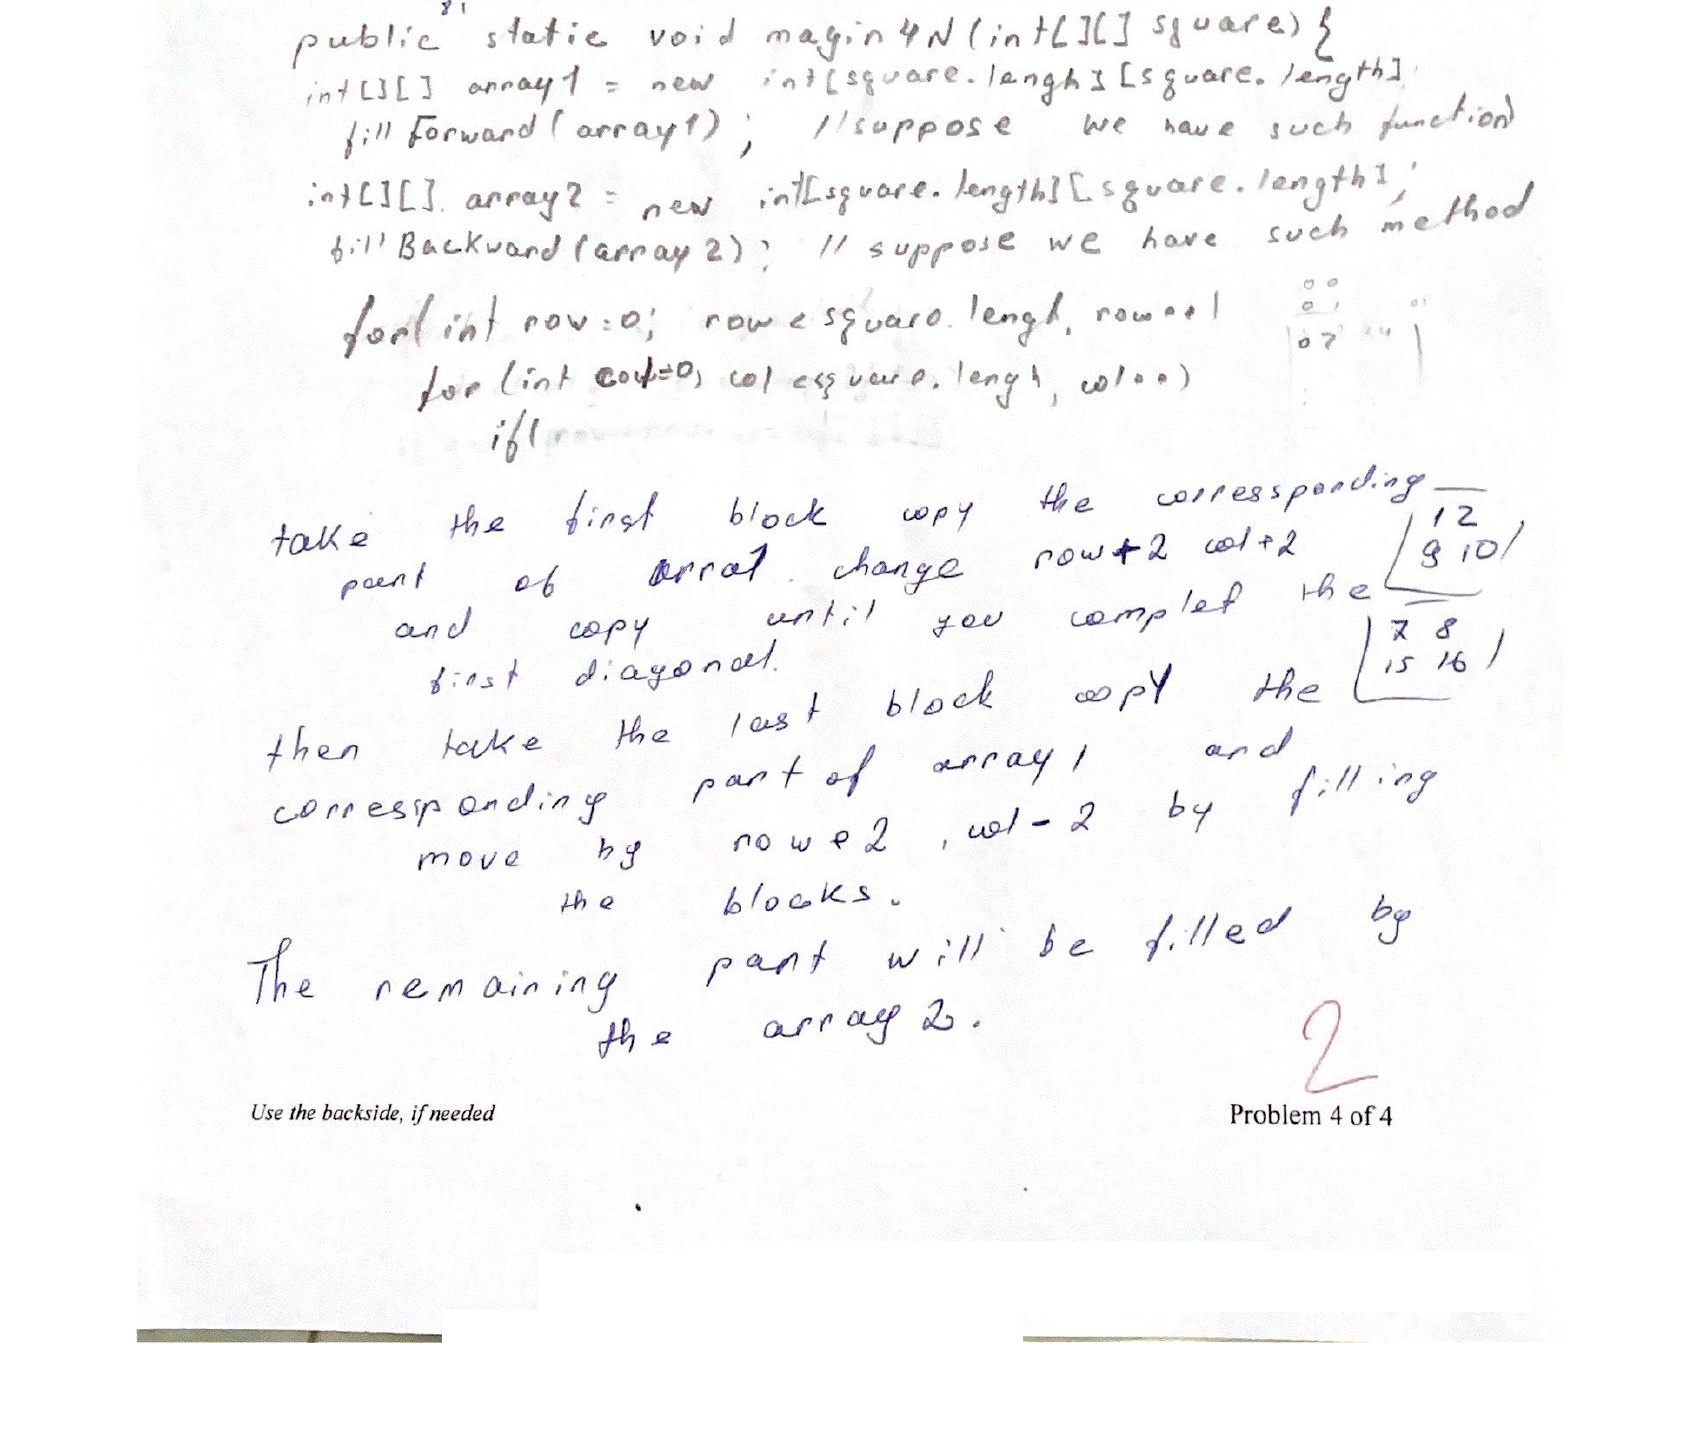 public static void magin4N(int[][] square) {
int[][] array1 = new int[square.lengh] [square.length]
fillForward(array1); //suppose we have such function
int[][] array2 = new int[square.length][square.length];
fillBackward(array2); // suppose we have such method
for(int row=0; row<square.lengh, row++)
for (int col=0, col<square.lengh, col++)
if(
take the first block copy the corressponding
1 2
9 10
part of arra1. change row+2 col+2
and copy until you complet the
first diagonal.
7 8
15 16
then take the last block copy the
corresponding part of array1 and
move by row+2, col-2 by filling
the blocks.
The remaining part will be filled by
the array2.
2
Use the backside, if needed
Problem 4 of 4